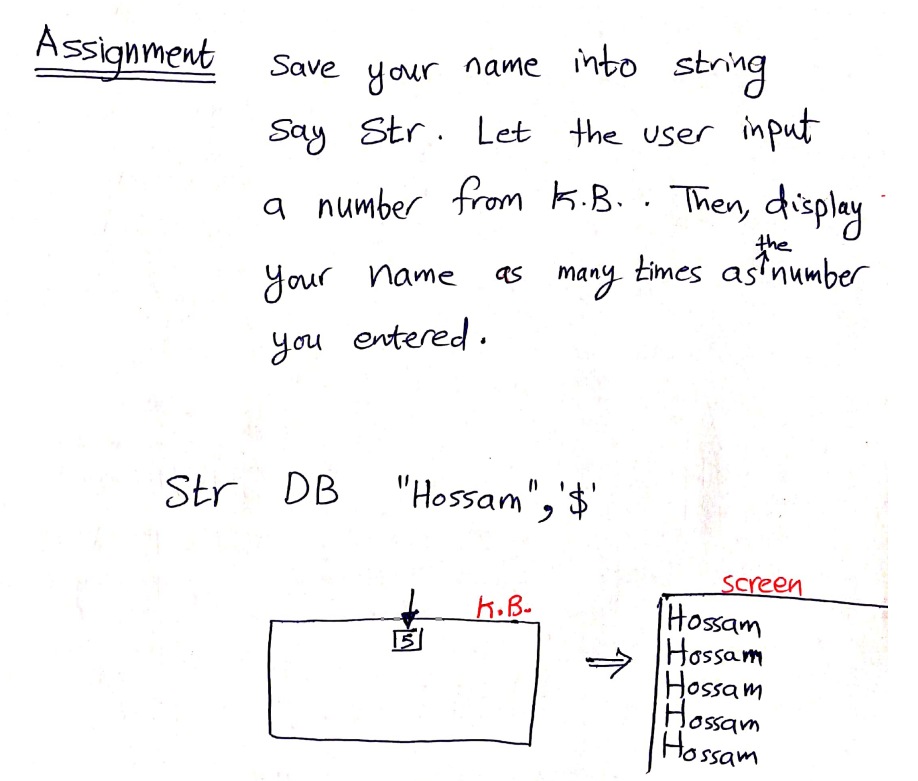 Assignment
Save your name into string
Say Str. Let the user input
a number from K.B.. Then, display
your name as many times as the number
you entered.
Str DB "Hossam",'$'
K.B.
5
screen
Hossam
Hossam
Hossam
Hossam
Hossam